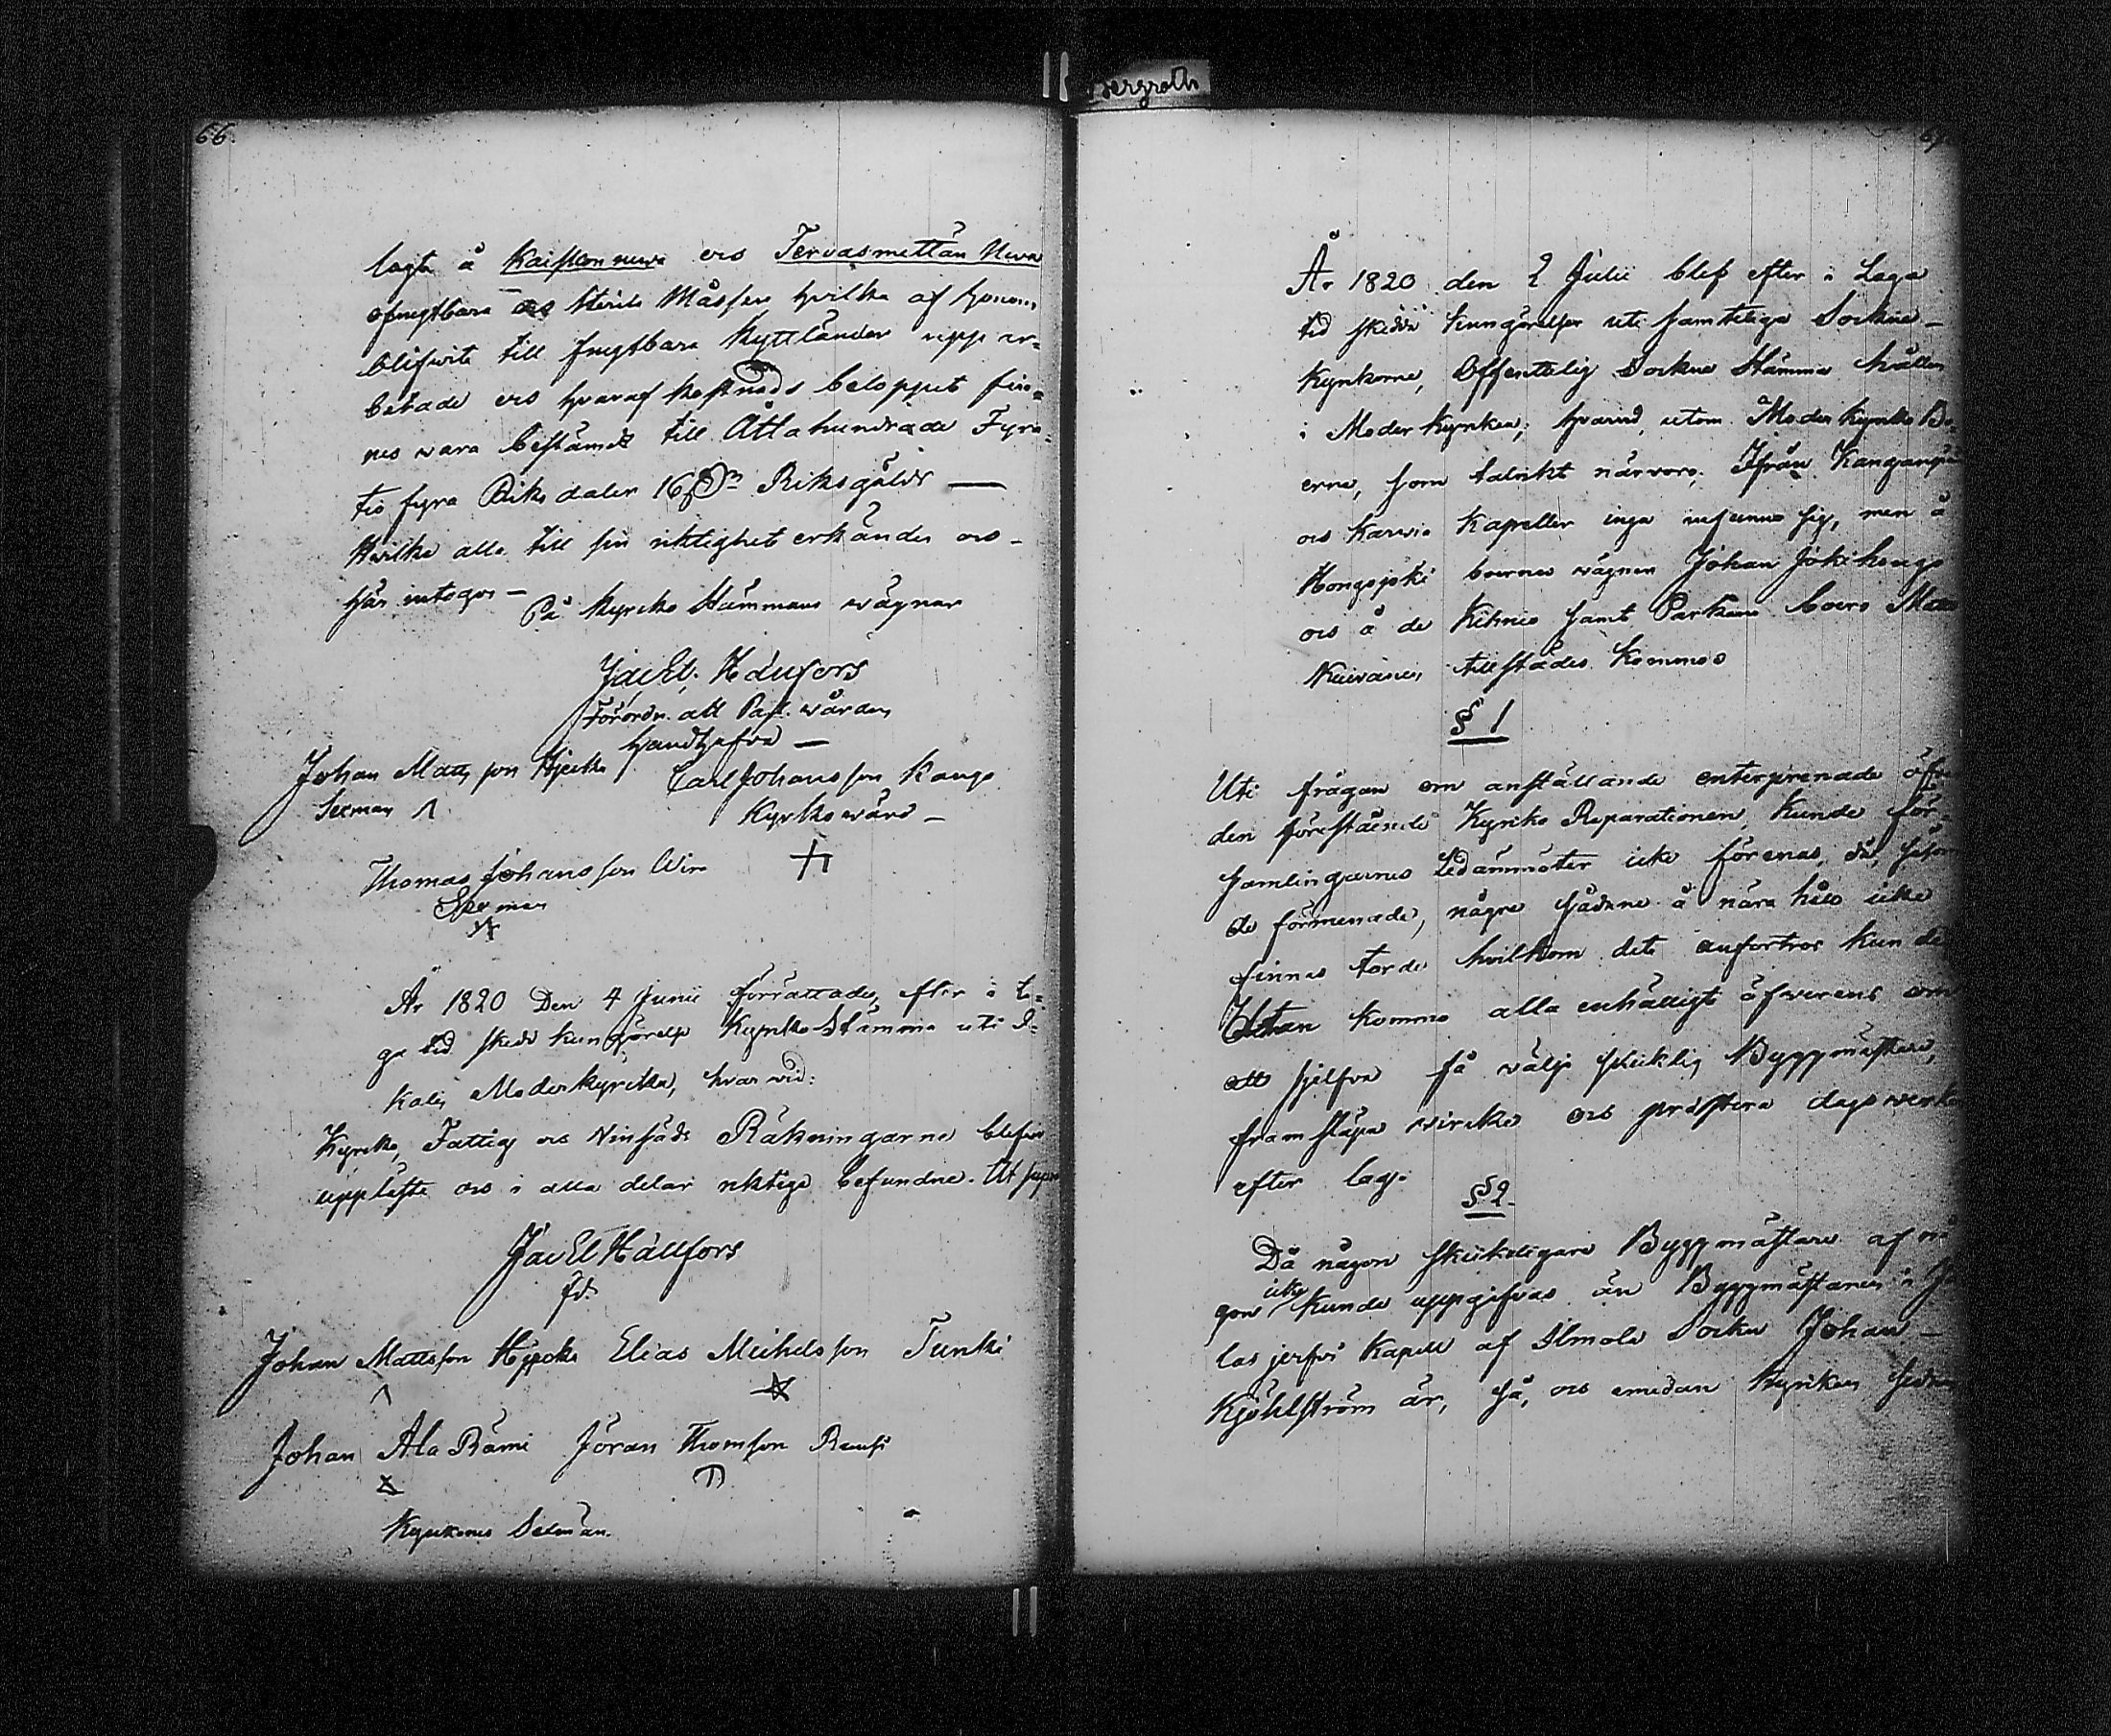 Bergroth
66.
lagte å Kaiskonneva och Tervasmettän Neva
ofrugtbara och sterila Måssar hvilka af honom
blifwit till frugtbara Kyttländer upp ar=
betade och hvaraf kostnads beloppet fin=
nes wara bestämdt till Åttahundrade Fyra=
tio fyra Riksdaler 16 Riksgälds —
Hvilka alla till sin riktighet erkändes och
här intogos —
På Kyrcko Stämmans wägnar
Jac. El. Hällfors
Förordn. att Past. wården
handhafva —
Johan Mattsson Hjecka
Sexman
Carl Johansson Kango
Kyrkowärd —
Thomas Johansson Wir
Sexman
År 1820 Den 4 Junii förrättades, efter i la=
ga tid skedd kungörelse KyrkoStämma uti I=
kalis Moderkyrcka, hvarvid:
Kyrcko, Fattig och Vinsäds Räkningarne blefvo
uppläste och i alla delar riktige befundne. Ut supra
Jac El Hällfors
Johan Mattsson Hjecka Elias Michelsson Tunki
Johan Ala Rämi Jöran Thomson
Kyrckones Sexmän.
År 1820 den 2 Julii blef efter i Laga
tid skedde kungörelser uti samteliga Sockne-
Kyrkorne, Offentelig Sockne Stämma hållen
i Moderkyrkan; hvarvid, utom Moderkyrko Bo
erne, som talrikt närvoro, Ifrån Kangan
och Karvia Kapeller inga infunno sig, men å
Hongojoki boernes wägnar Johan Jokihongo
och å de Kihnio samt Parkano boers Matts
tillstädes kommo
§ 1
Uti frågan om anställande entreprenade öfver
den förestående Kyrko Reparationen, kunde för=
samlingarnes Ledammöter icke förenas, då, såsom
de förmenade, någre sådane å nära håll icke
finnas torde hvilkom dete anförtros kunde
Utan kommo alla enhälligt öfwerens om
att sjelfva få wälja skicklig Byggmästare,
framsläpa wircke och præstera dagswerke
efter lag.
§ 2
Då någon skickeligare Byggmästare af nå
gon icke kunde uppgifvas än Byggmästaren i Ja
lasjerfvi Kapell af Ilmola Sockn Johan —
Kjöhlström är, så, och emedan Kyrkan